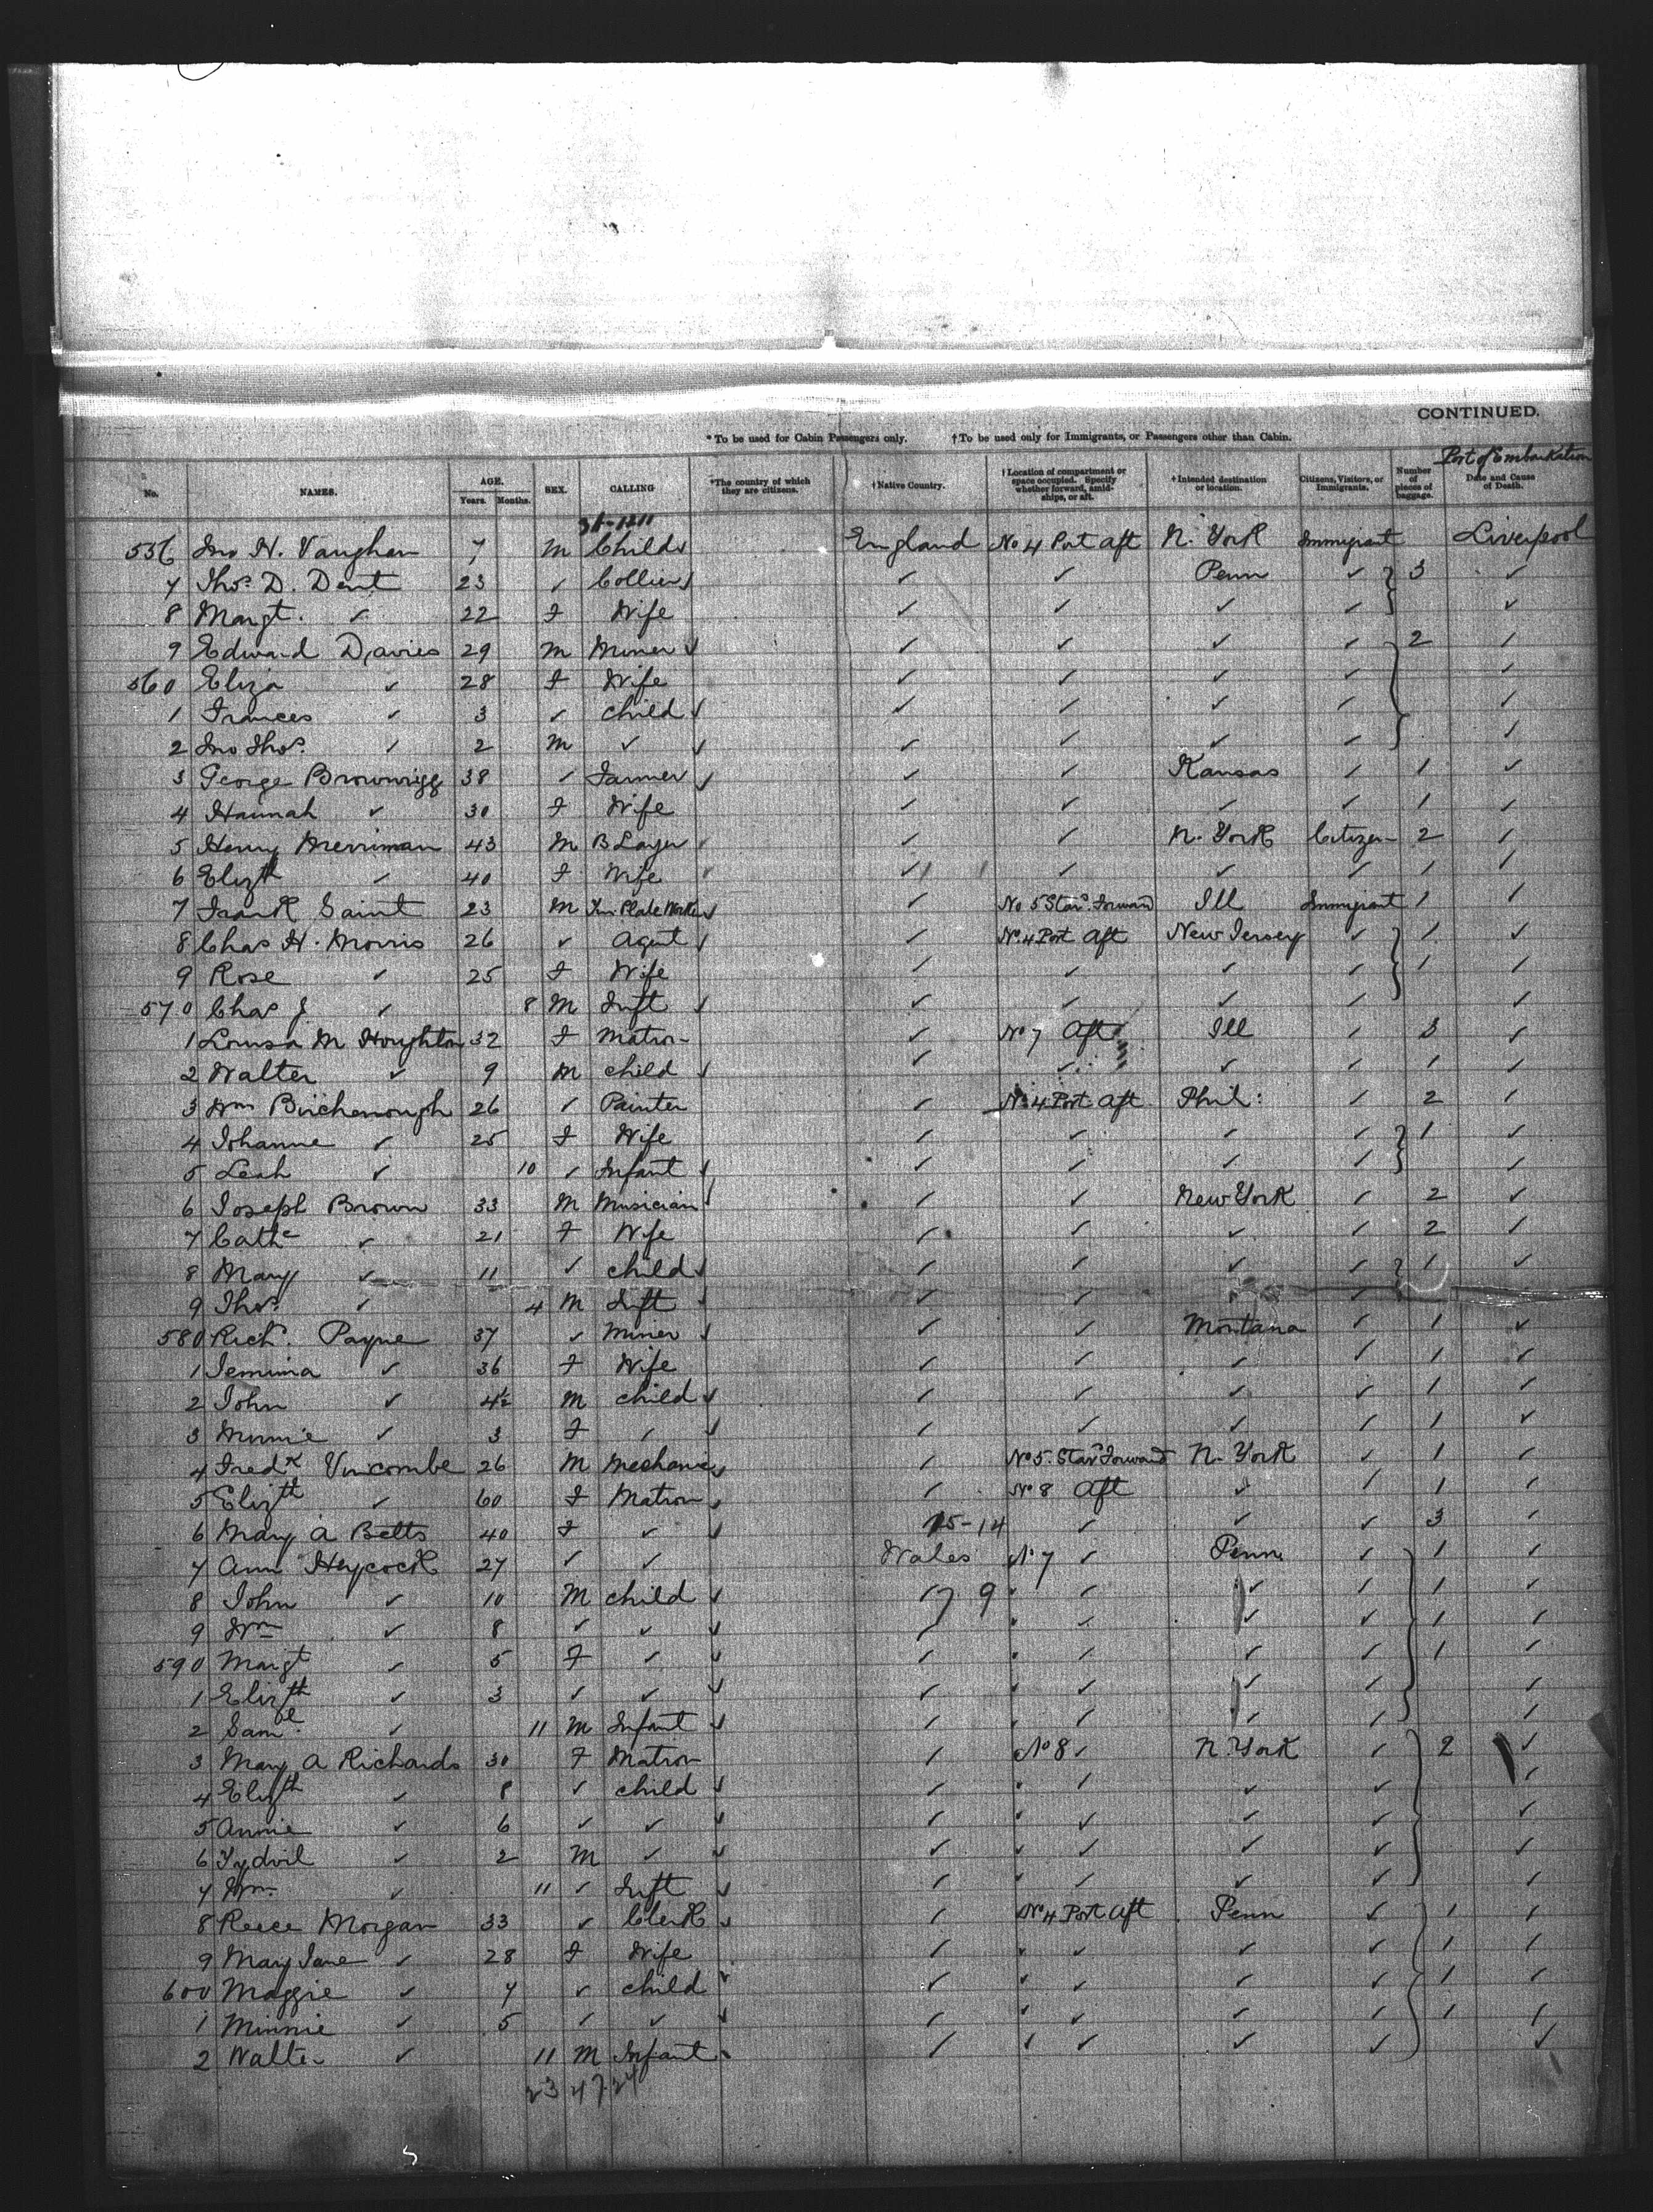 CONTINUED.
* To be used for Cabin Passengers only. † To be used only for Immigrants, or Passengers other than Cabin.
Port of Embarkation
No. NAMES. AGE. Years. Months. SEX. CALLING *The country of which they are citizens. †Native Country. †Location of compartment or space occupied. Specify whether forward, amidships, or aft. †Intended destination or location. Citizens, Visitors, or Immigrants. Number of pieces of baggage. Date and Cause of Death.
556 Jno H. Vaughan 7 M Child ✓ England No 4 Port aft N. York Immigrant Liverpool
7 Thos. D. Dent 23 ✓ Collier ✓ ✓ ✓ Penn ✓ 3 ✓
8 Margt. ✓ 22 F Wife ✓ ✓ ✓ ✓ ✓
9 Edward Davies 29 M Miner ✓ ✓ ✓ ✓ ✓ 2 ✓
560 Eliza ✓ 28 F Wife ✓ ✓ ✓ ✓ ✓
1 Frances ✓ 3 ✓ child ✓ ✓ ✓ ✓ ✓ ✓
2 Jno Thos. ✓ 2 M ✓ ✓ ✓ ✓ ✓ ✓ ✓
3 George Brownrigg 38 ✓ Farmer ✓ ✓ ✓ Kansas ✓ 1 ✓
4 Hannah ✓ 30 F Wife ✓ ✓ ✓ ✓ 1 ✓
5 Henry Merriman 43 M B Layer ✓ ✓ ✓ N. York Citizen 2 ✓
6 Elizth ✓ 40 F Wife ✓ ✓ ✓ ✓ ✓ 1 ✓
7 Frank Saint 23 M Tin Plate Worker ✓ ✓ No 5 Star. Forward Ill Immigrant 1 ✓
8 Chas H. Morris 26 ✓ Agent ✓ ✓ No. 4 Port Aft New Jersey ✓ 1 ✓
9 Rose ✓ 25 F Wife ✓ ✓ ✓ ✓ 1 ✓
570 Chas J. ✓ 8 M Inft ✓ ✓ ✓ ✓ ✓ ✓
1 Louisa M Houghton 32 F Matron ✓ No 7 Aft Ill ✓ 3 ✓
2 Walter ✓ 9 M child ✓ ✓ ✓ ✓ ✓ 1 ✓
3 Wm Birchenough 26 ✓ Painter ✓ No 4 Port aft Phil: ✓ 2 ✓
4 Johanne ✓ 25 F Wife ✓ ✓ ✓ ✓ 1 ✓
5 Leah ✓ 10 ✓ Infant ✓ ✓ ✓ ✓ ✓ ✓
6 Joseph Brown 33 M Musician ✓ ✓ ✓ New York ✓ 2 ✓
7 Cathe ✓ 21 F Wife ✓ ✓ ✓ ✓ 2 ✓
8 Mary ✓ 11 ✓ child ✓ ✓ ✓ ✓ ✓ 1 ✓
9 Thos. ✓ 4 M Inft ✓ ✓ ✓ ✓ ✓
580 Rich. Payne 37 ✓ Miner ✓ ✓ ✓ Montana ✓ 1 ✓
1 Jemima ✓ 36 F Wife ✓ ✓ ✓ ✓ 1 ✓
2 John ✓ 4½ M child ✓ ✓ ✓ ✓ ✓ 1 ✓
3 Minnie ✓ 3 F ✓ ✓ ✓ ✓ ✓ ✓ 1 ✓
4 Fredk Vincombe 26 M Mechanic ✓ ✓ No 5. Star Forward N. York ✓ 1 ✓
5 Elizth ✓ 60 F Matron ✓ ✓ No 8 Aft ✓ ✓ 1 ✓
6 Mary A Betts 40 F ✓ ✓ 15-14 ✓ ✓ ✓ 3 ✓
7 Ann Heycock 27 ✓ ✓ Wales No 7 ✓ Penn ✓ 1 ✓
8 John ✓ 10 M child ✓ 17 9 ✓ ✓ ✓ 1 ✓
9 Wm ✓ 8 ✓ ✓ ✓ ✓ ✓ ✓ ✓ 1 ✓
590 Margt ✓ 5 F ✓ ✓ ✓ ✓ ✓ ✓ 1 ✓
1 Elizth ✓ 3 ✓ ✓ ✓ ✓ ✓ ✓ ✓ ✓
2 Saml. ✓ 11 M Infant ✓ ✓ ✓ ✓ ✓ ✓
3 Mary A Richards 30 F Matron ✓ No 8 ✓ N. York ✓ 2 ✓
4 Elizth ✓ 8 ✓ child ✓ ✓ ✓ ✓ ✓ ✓
5 Annie ✓ 6 ✓ ✓ ✓ ✓ ✓ ✓ ✓ ✓
6 Tydvil ✓ 2 M ✓ ✓ ✓ ✓ ✓ ✓ ✓
7 Wm ✓ 11 ✓ Inft ✓ ✓ ✓ ✓ ✓ ✓
8 Reece Morgan 33 ✓ Clerk ✓ ✓ No 4 Port aft Penn ✓ 1 ✓
9 Mary Jane ✓ 28 F Wife ✓ ✓ ✓ ✓ 1 ✓
600 Maggie ✓ 7 ✓ child ✓ ✓ ✓ ✓ ✓ 1 ✓
1 Minnie ✓ 5 ✓ ✓ ✓ ✓ ✓ ✓ ✓ 1 ✓
2 Walter ✓ 11 M Infant ✓ ✓ ✓ ✓ ✓ ✓
23 47 24